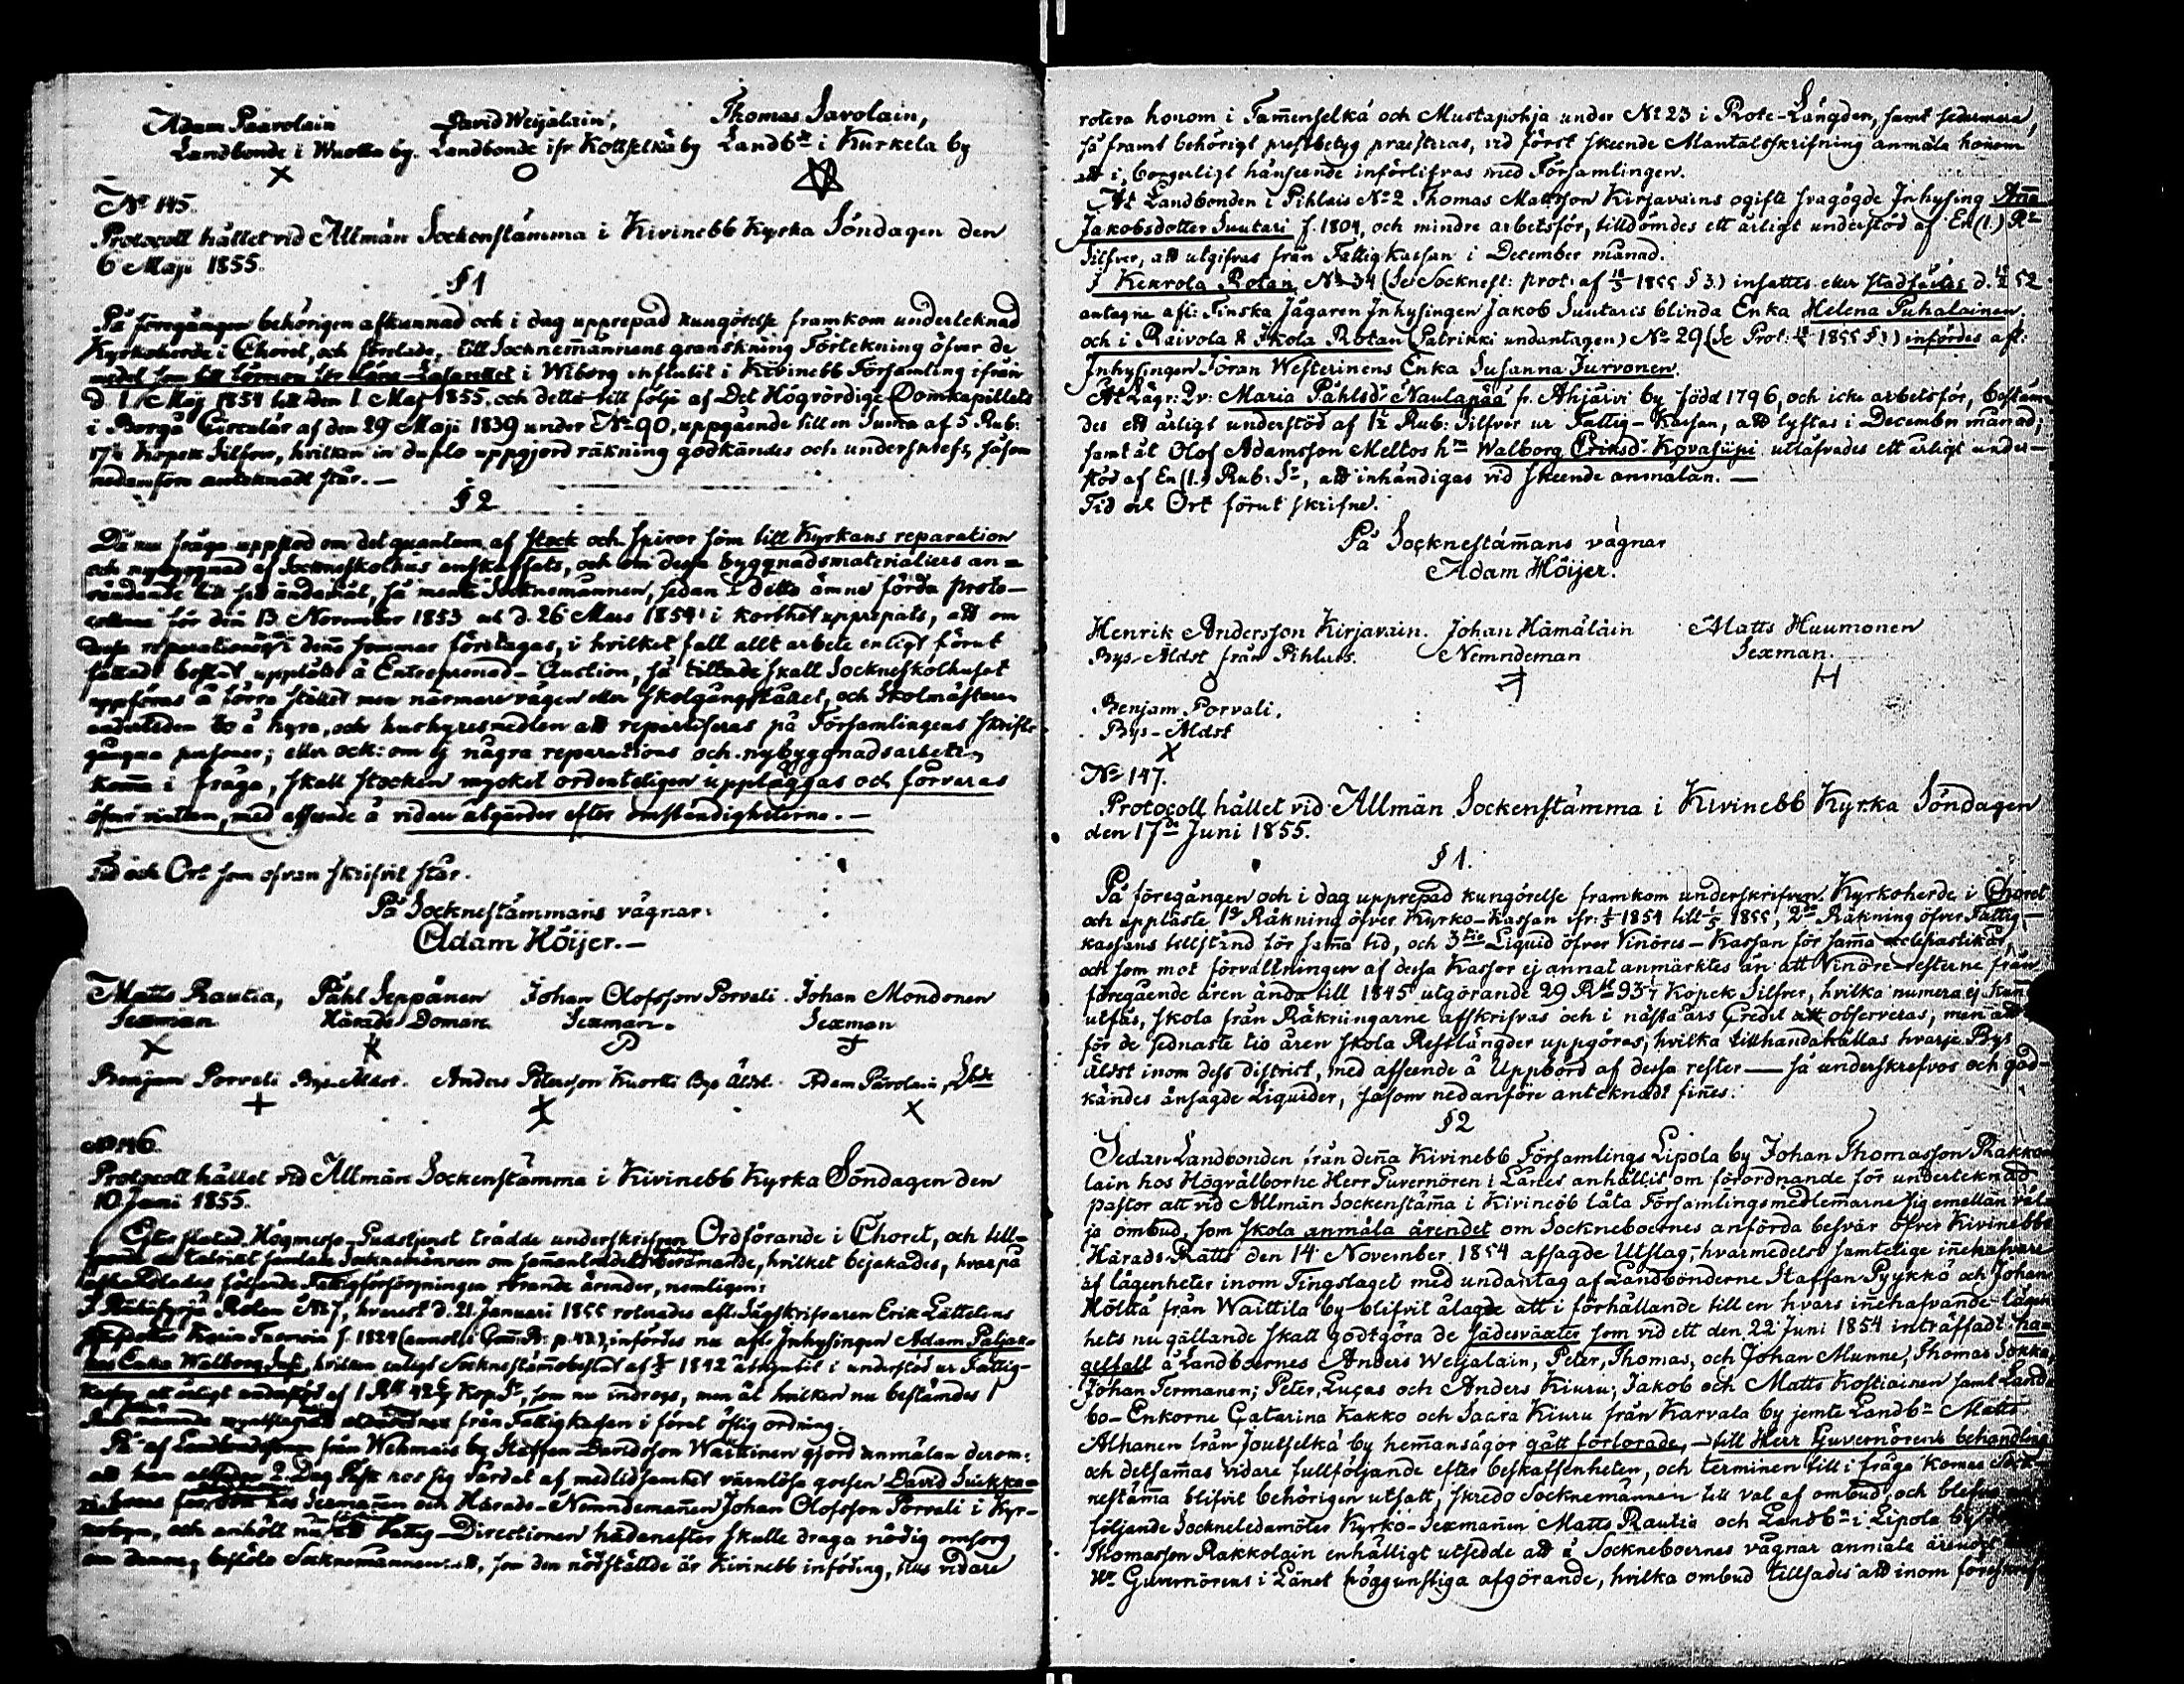 Adam Paavolain David Weijalain, Thomas Savolain,
Landbonde i Wuotta by. Landbonde ifr Kottselkä by Landb:de i Kurkela by
X O
No 145.
Protocoll hållet vid Allmän Sockenstämma i Kivinebb Kyrka Söndagen den
6 Maji 1855.
§ 1
På föregången behörigen afkunnad och i dag upprepad kungörelse framkom underteknad
Kyrkoherde i Choret, och förelade, till Sockneman̄nens granskning Förtekning öfver de
medel som till Läns-Lasarettet i Wiborg influtit i Kivinebb Församling ifrån
d. 1. Maj 1854 till den 1. Maj 1855. och detta till följe af Det Högvördige Domkapitlets
i Borgå Circulär af den 29 Maji 1839 under No 90, uppgående till en Suma af 5 Rub:
17½ Kopek Silfver, hvilken in duplo uppgjord räkning godkändes och underskrefs, såsom
nedanföre anteknadt står.—
§ 2
Då nu fråga uppstod om det quantum af stock och spiror som till Kyrkans reparation
och nybyggnad af Sockneskolhus anskaffats, och om dessa byggnadsmaterialiers an=
vändande till sitt ändamål, så mente Socknemännen, sedan i detta ämne förda proto—
collerne för den 13 November 1853 och d. 26 Mars 1854 i korthet upprepats, att om
dessa reparationer i den̄e sommar företagas, i hvilket fall allt arbete enligt förut
fattadt beslut, upplåtes å Entreprenad-Auction, så tillika skall Sockneskolhuset
uppföras å förra stället men närmare vägen eller Skolgångstället, och Skolmästaren
undertiden bo å hyra, och hushyresmedlen att repartiseras på Församlingens skrift-
gångna personer; eller ock: om ej några reparations och nybyggnadsarbeten
kom̄a i fråga, skall stocken mycket ordenteligen uppläggas och förvaras
öfver vintern, med afseende å vidare åtgärder efter omständigheterna.—
Tid och Ort som ofvan skrifvit står.
På Socknestämmans vägnar:
Adam Höijer.—
Matts Rautia, Påhl Seppänen Johan Olofsson Porvali. Johan Mondonen
Sexman Härads Domare Sexman. Sexman
X
Benjam Porvali Bys-Äldst. Anders Petersson Kuortti Bys Äldst. Adam Pavolain, Lbde
+ X X
No 146.
Protocoll hållet vid Allmän Sockenstämma i Kivinebb Kyrka Söndagen den
10 Juni 1855.
Efter slutad Högmesso-Gudstjenst trädde underskrifven Ordförande i Choret, och till-
sporde de talrikt samlade Socknemännen om sammanträdets, hvilket bejakades, hvarpå
afhandlades följande Fattigförsörjningen rörande ärender, nemligen:
Rotan No 7, hvarest d. 21 Januari 1855 roterades afl. Erik Lättelens
Karin Tuomain f. 1824, infördes nu afl. Inhysingen Adam Paljak-
Enka Walborg, hvilken enligt Socknestäm̄obeslut af 1842 åtnjutit i understöd ur Fattig-
Kassan ett årligt understöd af 1 Rb 42 Kop Sr, som nu indrogs, men åt hvilken nu bestämdes
från Fattigkassan i förut öflig ordning.
På af Landbondesonen från Wehmais by Staffan Davidsson Waittinen gjord anmälan derom:
att han hos sig vårdat af medlidsamhet värnlösa gossen David Suikka-
hos Sexman̄en och Härads-Nemndeman̄en Johan Olofsson Porvali i Kyr-
kobyn, och anhöll nu att Fattig-Directionen hädanefter skulle draga nödig omsorg
om denne, beslöto Socknemännen: att, som den nödställde är Kivinebb införing, hus vidare
rotera honom i Tam̄enselkä och Mustapohja under No 23 i Rote-Längden, samt sedermera,
så framt behörigt prestbetyg præsteras, vid först skeende Mantalsskrifning anmäla honom
att i borgerligt hänseende införlifvas med Församlingen.
At Landbonden i Pihlais No 2 Thomas Mattsson Kirjavains ogifta svagögde Inhysing An̄a
Jakobsdotter Suutari f. 1804, och mindre arbetsför, tilldömdes ett årligt understöd af En (1.) Rb
Silfver, att utgifvas från Fattigkassan i December månad.
I Kekrola Rotan No 34 (Se Sockenst: prot: af 1855 § 3.) insattes eller stadfästes d. 52
antagne afl: Finska Jägaren Inhysingen Jakob Suutaris blinda Enka Helena Puhalainen,
och i Raivola & Ikola Rotan (Patrikki undantagen) No 29 (Se Prot: 1855 § 1) infördes afl:
Inhysingen Jöran Westerinens Enka Susanna Turvonen.
At Lägr: Qv: Maria Påhlsdr Naulapää fr. Ahjärvi by född 1796, och icke arbetsför, bestäm-
des ett årligt understöd af 1½ Rub: Silfver ur Fattig-Kassan, att lyftas i Decembr månad;
samt åt Olof Adamsson Meltos hru Walborg Eriksdr Kovasiipi utlafvades ett årligt under—
stöd af En (1.) Rub: Sr, att inhändigas vid skeende anmälan.—
Tid och Ort förut skrifne.
På Socknestäm̄ans vägnar
Adam Höijer.
Henrik Andersson Kirjavain. Johan Hämäläin Matts Huumonen
Bys-Äldst från Pihlais. Nemndeman Sexman.
Benjam Porvali.
Bys-Äldst
X
No 147.
Protocoll hållet vid Allmän Sockenstämma i Kivinebb Kyrka Söndagen
den 17de Juni 1855.
§ 1.
På föregången och i dag upprepad kungörelse framkom underskrifven Kyrkoherde i Choret
och uppläste 1o Räkning öfver Kyrko-Kassan ifr: 1/5 1854 till 1/5 1855, 2do Räkning öfver Fattig—
kassans tillstånd för sam̄a tid, och 3tio Liquid öfver Vinöres-Kassan för sam̄a ecclesiastikår,
och som mot förvaltningen af dessa Kassor ej annat anmärktes än att Vinöre-resterne från
föregående åren ända till 1845 utgörande 29 Rbl 93 Kopek Silfver, hvilka numera ej kun̄
utfås, skola från Räkningarne afskrifvas och i nästa års Credit observeras, men att
för de sednaste tio åren skola Restlängder uppgöras, hvilka tillhandahållas hvarje Bys
Äldst inom dess district, med afseende å Uppbörd af dessa rester — så underskrefvos och god-
kändes ånsagde Liquider, såsom nedanföre anteknadt fin̄es.
§ 2
Sedan Landbonden från den̄a Kivinebb Församlings Lipola by Johan Thomasson Rakko-
lain hos Högvälborne Herr Guvernören i Länet anhållit om förordnande för underteknad
pastor att vid Allmän Sockenstäm̄a i Kivinebb låta Församlingsmedlem̄arne sig emellan väl-
ja ombud, som skola anmäla ärendet om Sockneboernes anförda besvär öfver Kivinebbs
Härads-Rätts den 14 November 1854 afsagde Utslag, hvarmedelst samtelige in̄ehafvare
af lägenheter inom Tingslaget med undantag af Landbönderne Staffan Pyykkö och Johan
Höltä från Waittila by blifvit ålagde att i förhållande till en hvars in̄ehafvande lägen-
hets nu gällande skatt godtgöra de sädesväxter som vid ett den 22 Juni 1854 inträffadt ha-
gelfall å Landboernes Anders Weijalain, Peter, Thomas, och Johan Munne, Thomas Sokka,
Johan Termanen; Peter, Lucas och Anders Kiuru; Jakob och Matts Kostiainen samt Land-
bo-Enkorne Catarina Kakko och Saara Kiuru från Karvala by jemte Landb:n Matts
Alhanen från Joutselkä by hem̄ansägor gått förlorade, — till Herr Guvernörens behandling
och detsam̄as vidare fullföljande efter beskaffenheten, och terminen till i fråga kom̄ne Sock-
nestäm̄a blifvit behörigen utsatt, skredo Socknemännen till val af ombud, och blefvo
följande Sockneledamöter Kyrko-Sexman̄en Matts Rautia och Landb:n i Lipola by
Thomasson Rakkolain enhälligt utsedde att å Sockneboernes vägnar anmäla ärendet
Hr Guvernörens i Länet höggunstiga afgörande, hvilka ombud tillsades att inom föreskrif-